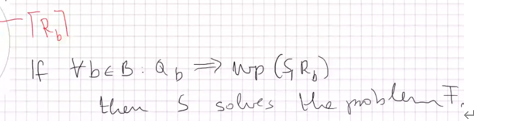 ⌈R_b⌉
If ∀b∈B: Q_b ⟹ wp(S, R_b)
then S solves the problem F.